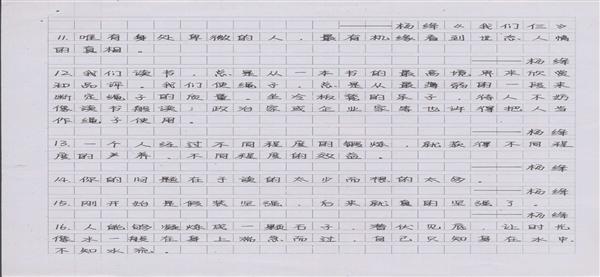 ——杨绛《我们仨》
11.唯有身处卑微的人，最有机缘看到世态人情
的真相。
——杨绛
12.我们读书，总是从一本书的最高境界来欣赏
和品评。我们使绳子，总是从最薄弱的一段来
断定绳子的质量。坐冷板凳的呆子，待人不妨
像读书般读；政治家或企业家等也许得把人当
作绳子使用。
——杨绛
13.一个人经过不同程度的锻炼，就获得不同程
度的修养，不同程度的效益。
——杨绛
14.你的问题在于读的太少而想的太多。
——杨绛
15.刚开始是假装坚强，后来就真的坚强了。
——杨绛
16.人能够凝炼成一颗石子，潜伏见底，让时光
像水一般在身上湍急而过，自己只知身在水中，
不知水流。